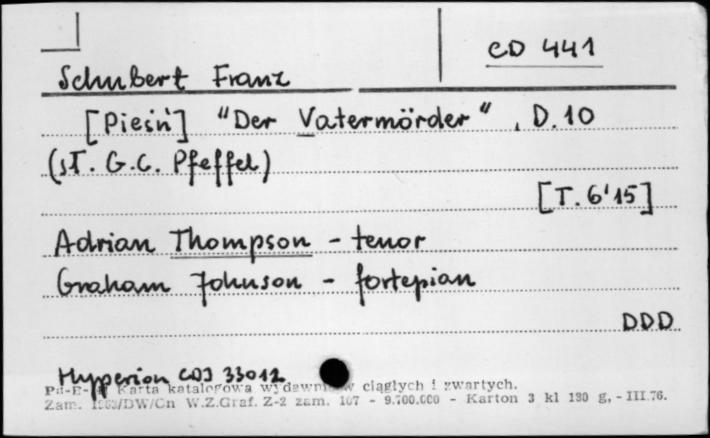 CD 441
Schubert Franz
[Pieśń] "Der Vatermörder", D. 10
(sł. G.C. Pfeffel)
[T. 6'15]
Adrian Thompson - tenor
Graham Johnson - fortepian
DDD
Hyperion CDJ 33012
Karta katalogowa ciągłych i zwartych.
Zam. /DW/Cn W.Z.Graf. Z-2 zam. 107 - 9.700.000 - Karton 3 kl 180 g, - III.76.